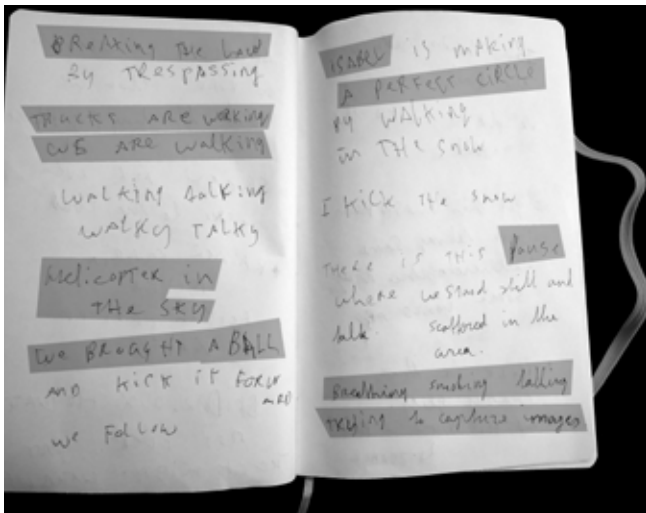 BREAKING THE LAW
BY TRESPASSING
TRUCKS ARE WORKING
WE ARE WALKING
WALKING TALKING
WALKY TALKY
HELICOPTER in
THE SKY
WE BROUGHT A BALL
AND KICK IT FORW
ARD
WE FOLLOW
ISABEL is MAKING
A PERFECT CIRCLE
BY WALKING
in THE SNOW
I KICK THE SNOW
THERE is THIS pause
where we stand still and
talk. scattered in the
area.
Breathing smoking talking
TRYING to capture images